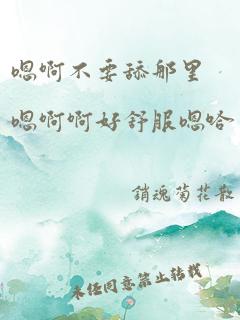 嗯啊不要舔那里
嗯啊啊好舒服嗯哈
銷魂菊花散
未经同意禁止转载